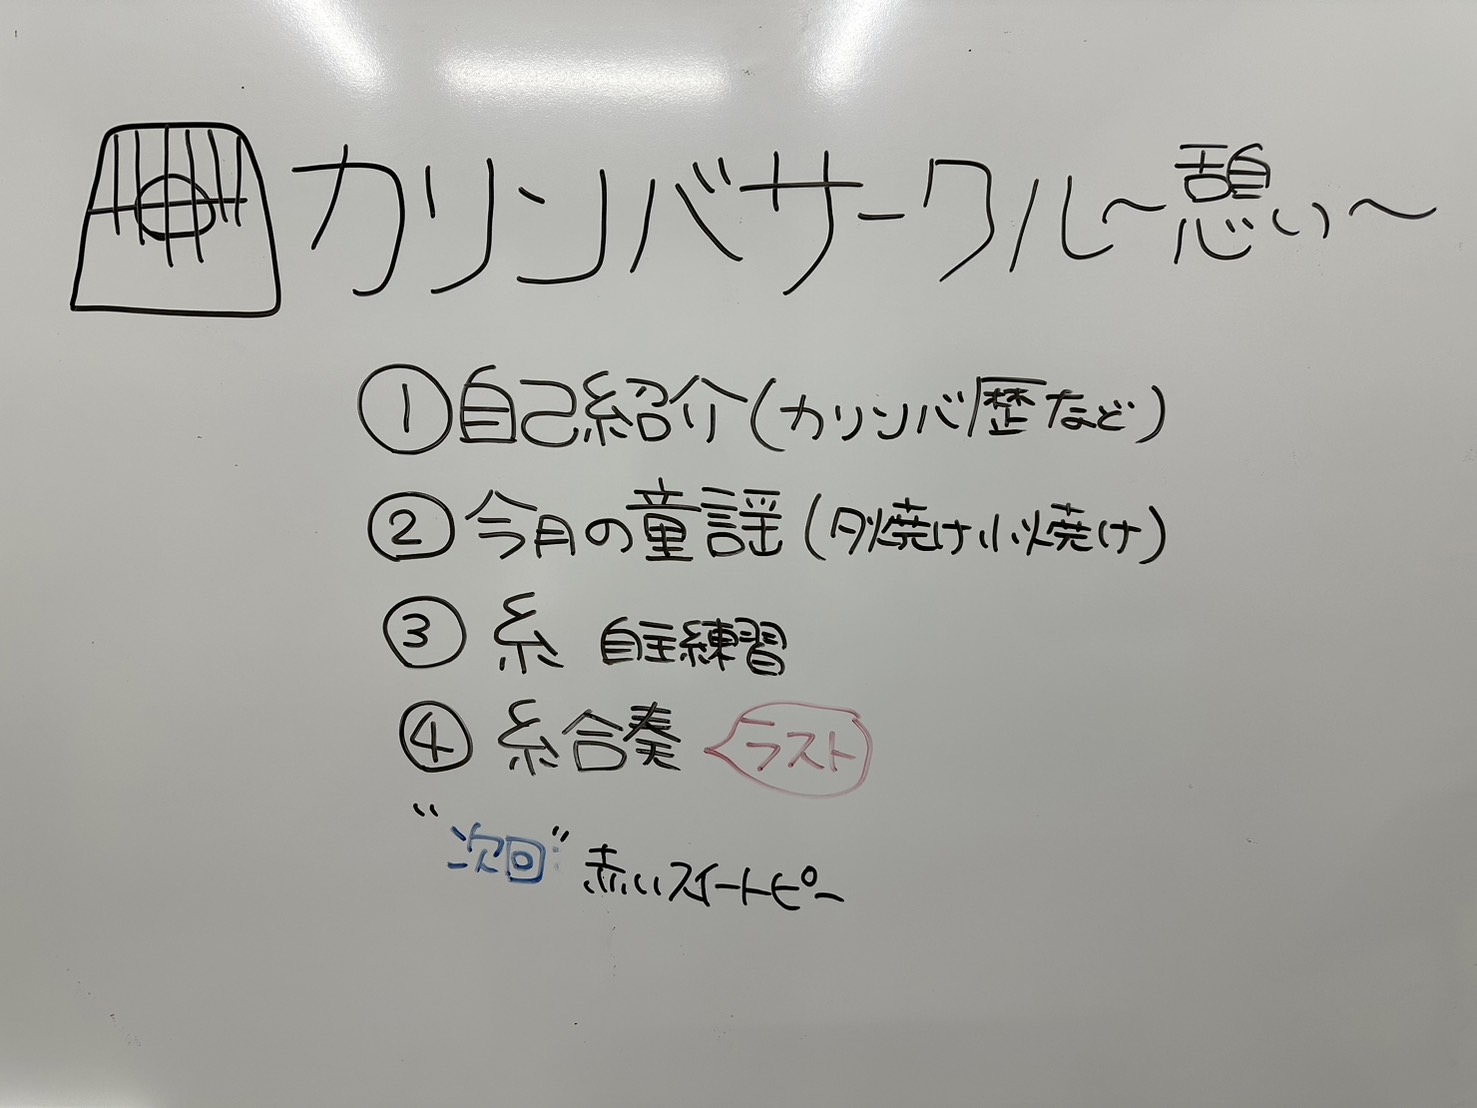 カリンバサークル〜憩い〜
①自己紹介(カリンバ歴など)
②今月の童謡(夕焼け小焼け)
③糸 自主練習
④糸合奏 ラスト
"次回" 赤いスイートピー